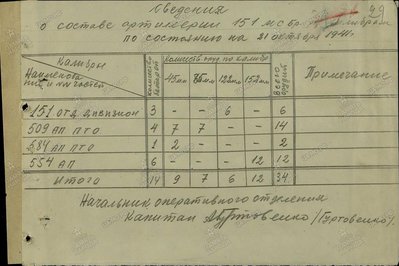 Сведения
о составе артиллерии 151 мсбр
по состоянию на 21 октября 1941 г.
29
Калибры
Наименова
ние и № частей
количество батарей
количество оруд. по калибр.
45мм 76мм 122мм 152мм
всего орудий
Примечание
151 отд. дивизион 3 - - 6 - 6
509 АП ПТО 4 7 7 - - 14
584 АП ПТО 1 2 - - - 2
554 АП 6 - - - 12 12
Итого 14 9 7 6 12 34
Начальник оперативного отделения
Капитан /Гуртовенко/.